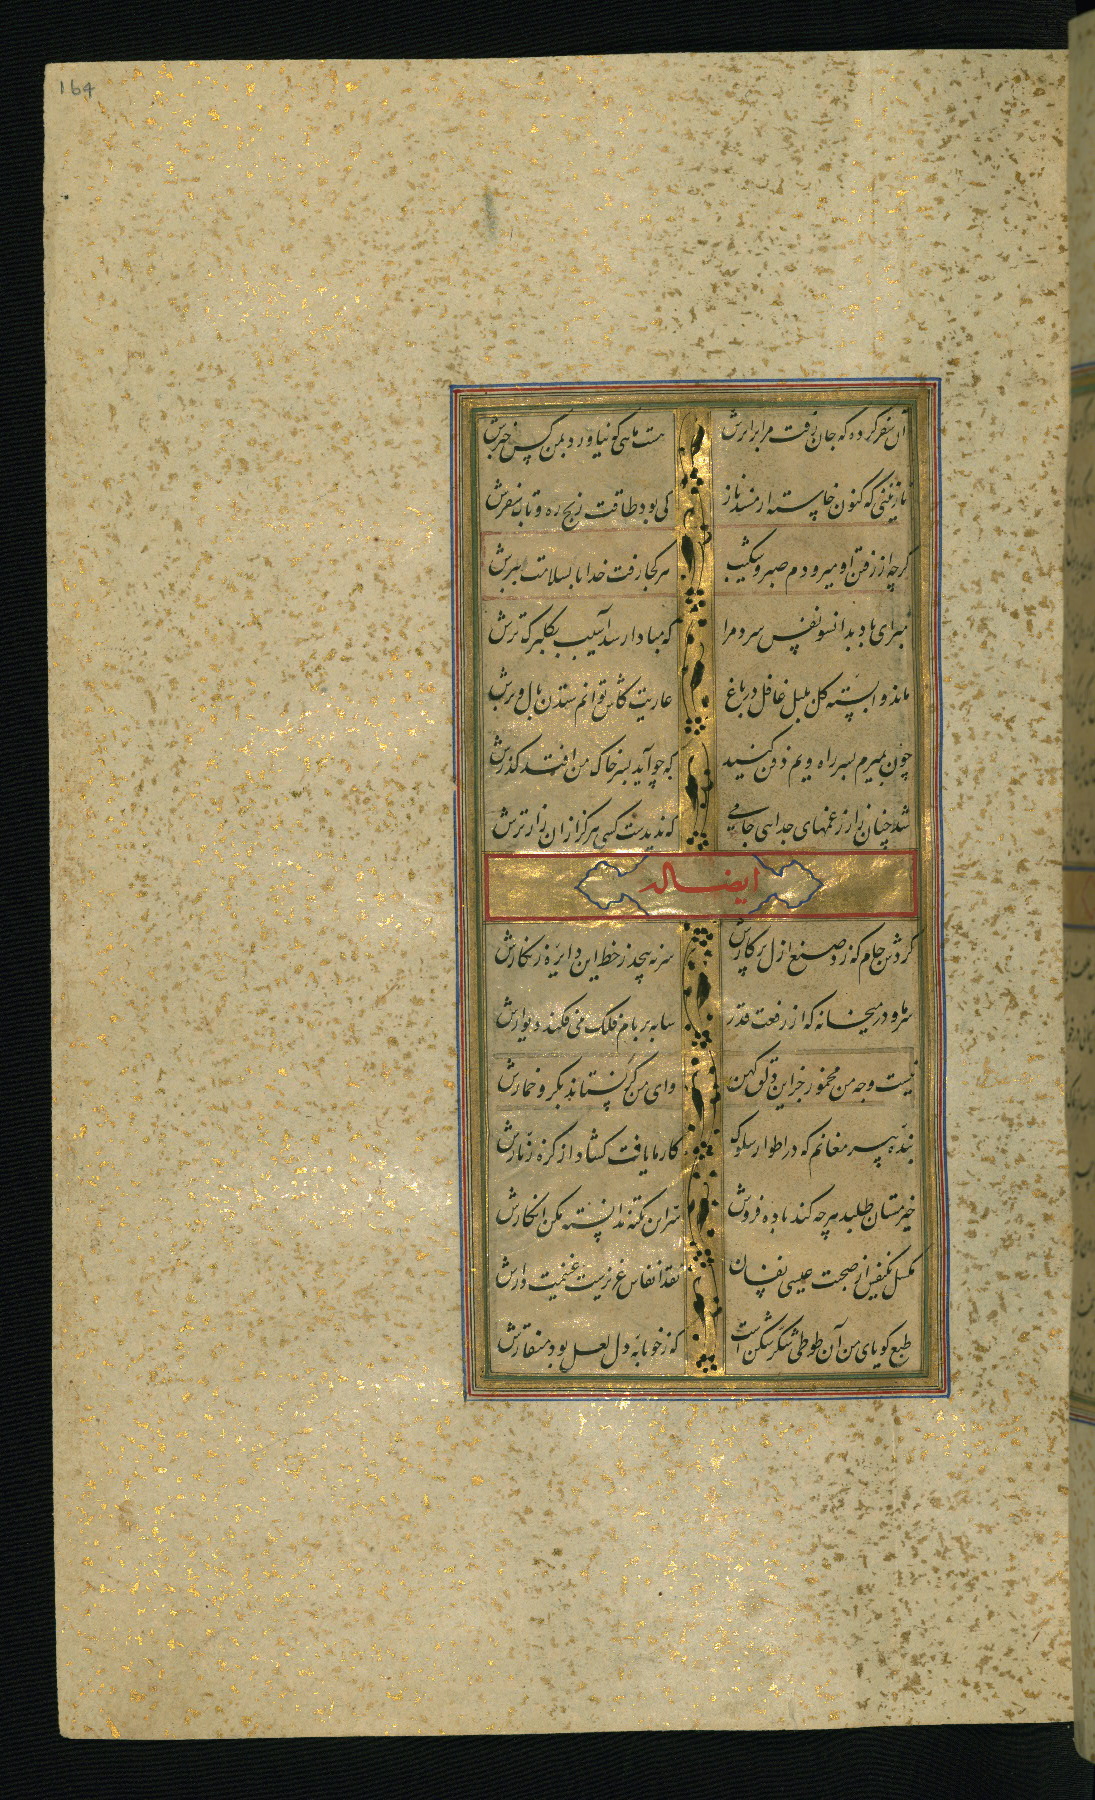 164
آن سفر کرده که جان رفت مرا بر اثرش
هست ماهی که نیاورد بمن کس خبرش
نازنینی که کنون خاسته از مسند ناز
کی بود طاقت رنج ره و تاب سفرش
گرچه از رفتن او میرودم صبر و شکیب
هر کجا رفت خدایا بسلامت ببرش
مبر ای باد بدانسو نفس سرد مرا
که مبادا رسد آسیب بگلبرگ ترش
ماند وابسته گل بلبل غافل در باغ
عاریت کاش توانم ستدن بال و پرش
چون بمیرم بسر راه ویم دفن کنید
که چو آید بسر خاک من افتد گذرش
شد چنان زار ز غمهای جدایی جامی
که ندیدست کسی هرگز ازان زارترش
ایضا له
گردش جام که زد صنع ازل پرگارش
سر نه پیچد ز خط این دایره زنگارش
سر ما و در میخانه که از رفعت قدر
سایه بر بام فلک می فکند دیوارش
نیست وجه من مخمور جز این دلق کهن
وای من گر نستاند بگرو خمارش
بنده پیر مغانم که در اطوار سلوک
کار ما یافت گشاد از گره زنارش
خیر مستان طلبد هر چه کند باده فروش
سر این نکته ندانسته مکن انکارش
مگسل یکنفس از صحبت عیسی نفسان
نقد انفاس عزیزست غنیمت دارش
طبع گویای من آن طوطی شکر شکن است
که ز خونابه دل لعل بود منقارش